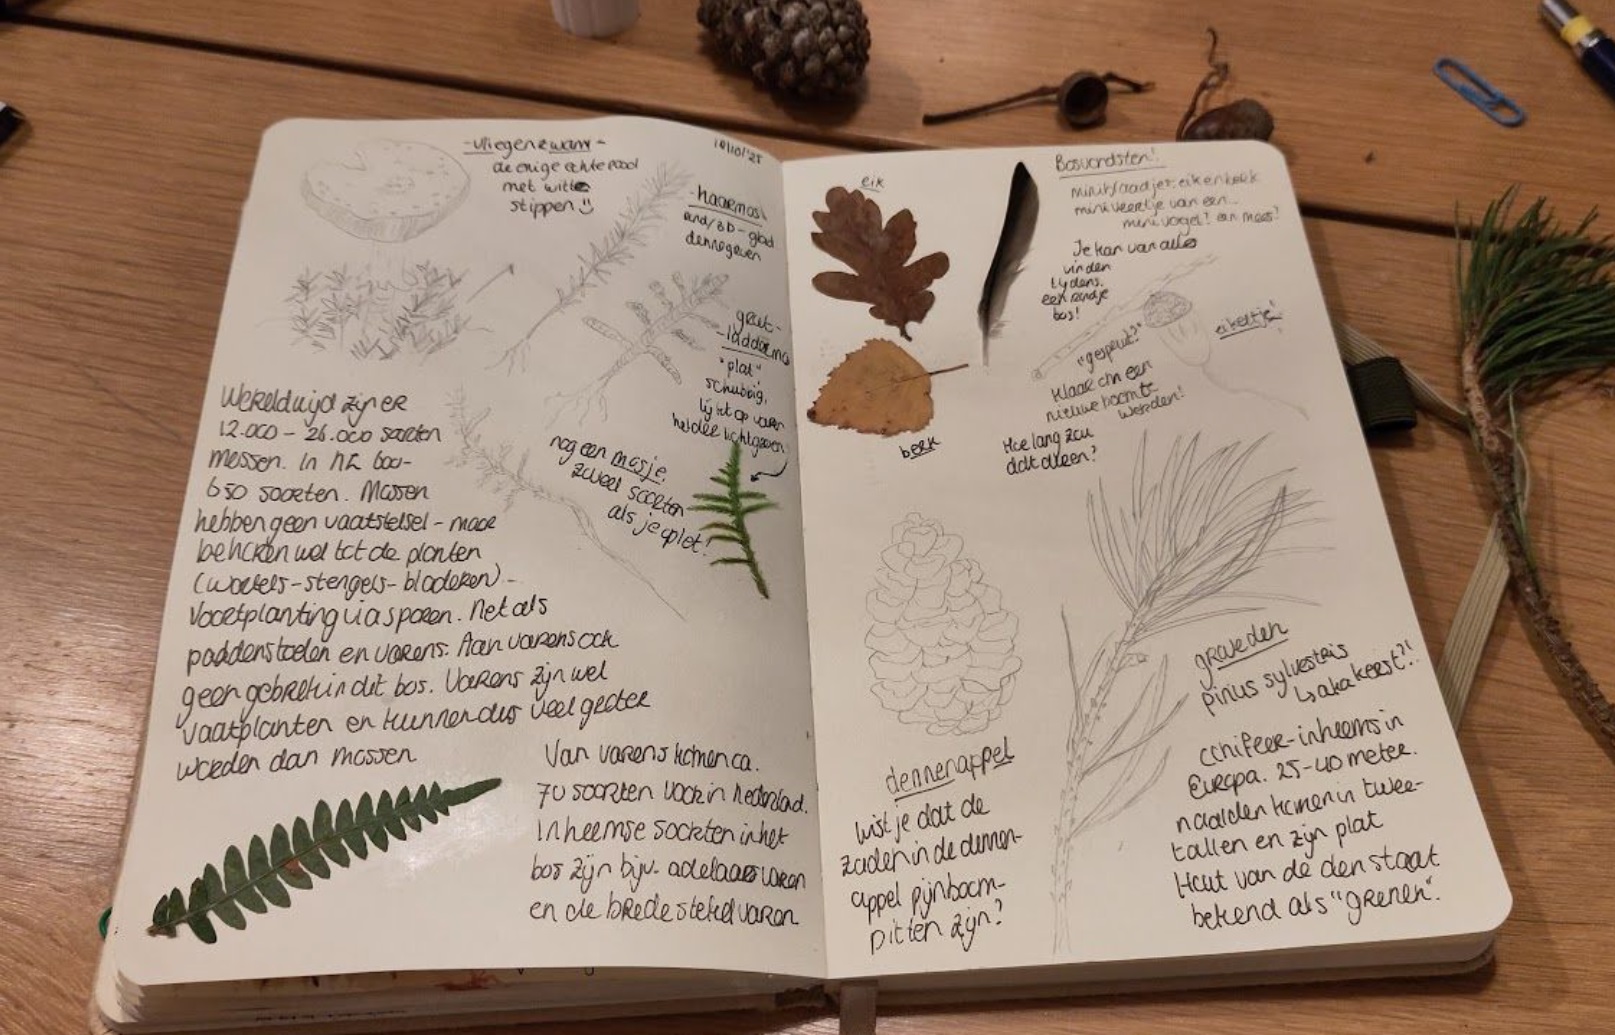 -vliegenzwam-
de enige echte rood
met witte
stippen
10/10/'25
-haarmos
rond/3D-glad
dennegroen
groot-
-laddermos
"plat"
schubbig,
lijkt op varen
helder lichtgroen
nog een mosje.
zoveel soorten
als je oplet!
Wereldwijd zijn er
12.000 - 26.000 soorten
mossen. In NL 600-
650 soorten. Mossen
hebben geen vaatstelsel - maar
behoren wel tot de planten
(wortels-stengels-bladeren)-
Voortplanting via sporen. Net als
paddenstoelen en varens. Aan varens ook
geen gebrek in dit bos. Varens zijn wel
vaatplanten en kunnen dus veel groter
worden dan mossen
Van varens komen ca.
70 soorten voor in Nederland.
Inheemse soorten in het
bos zijn bijv. adelaarsvaren
en de brede stekelvaren
eik
berk
Bosvondsten!
miniblaadjes: eik en berk
mini veertje van een...
mini vogel? een mees?
Je kan van alles
vinden
tijdens
een rondje
bos!
eikeltje!
"gespruit?"
Klaar om een
nieuwe boom te
worden!
Hoe lang zou
dat duren?
dennenappel
Wist je dat de
zaden in de dennen-
appel pijnboom-
pitten zijn?
grove den
pinus sylvestris
↳ aka kerst?!
conifeer-inheems in
Europa. 25-40 meter.
naalden komen in twee-
tallen en zijn plat
Hout van de den staat
bekend als "grenen".